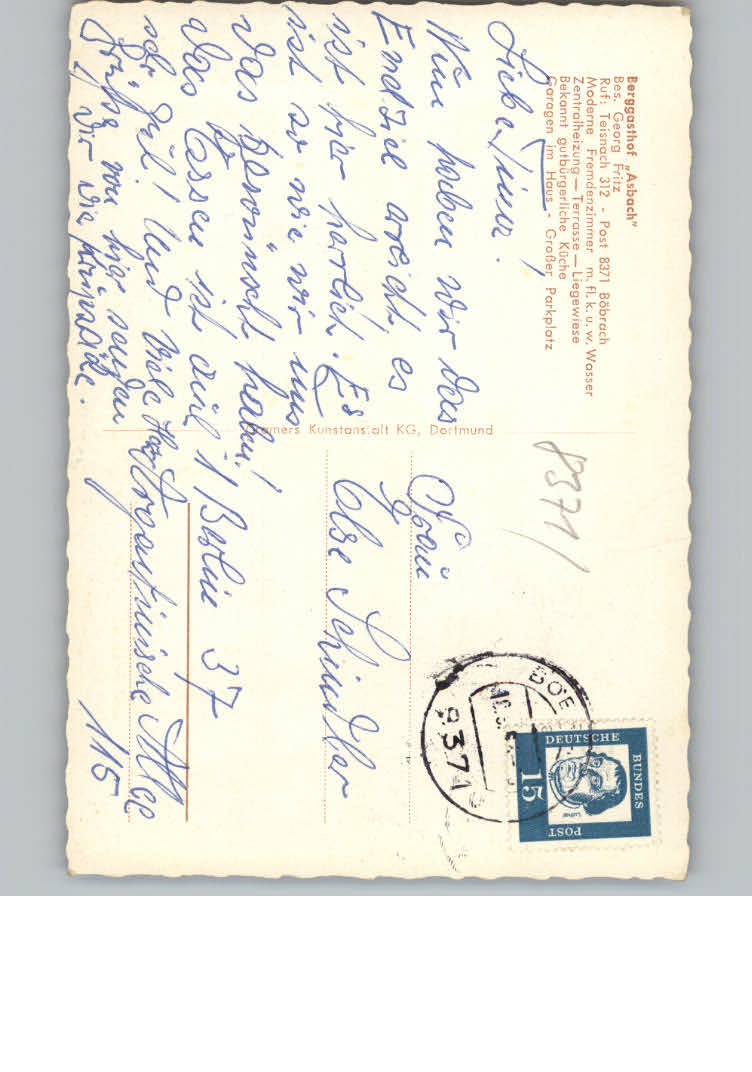 Berggasthof „Asbach"
Bes. Georg Fritz
Ruf: Teisnach 312 - Post 8371 Böbrach
Moderne Fremdenzimmer m. fl. k. u. w. Wasser
Zentralheizung — Terrasse — Liegewiese
Bekannt gutbürgerliche Küche
Garagen im Haus - Großer Parkplatz
Liebe
Nun haben wir das
Endziel erreicht, es
ist hier herrlich. Es
ist so wie wir uns
das gewünscht haben!
Das Essen ist auch
sehr gut! Und viele
Grüße von hier senden
Dir die
Kunstanstalt KG, Dortmund
8371
Frau
Else Schindler
1 Berlin 37
Argentinische Allee
115
8371
DEUTSCHE
BUNDES
POST
15
Luther